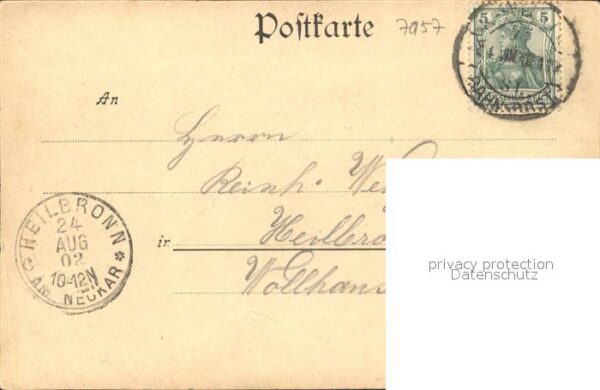 Postkarte 7957
5 5
An
Herrn
Reinh.
in Heilbro
Wollhaus
HEILBRONN
24
AUG
02
10-12N
AM NECKAR
privacy protection
Datenschutz